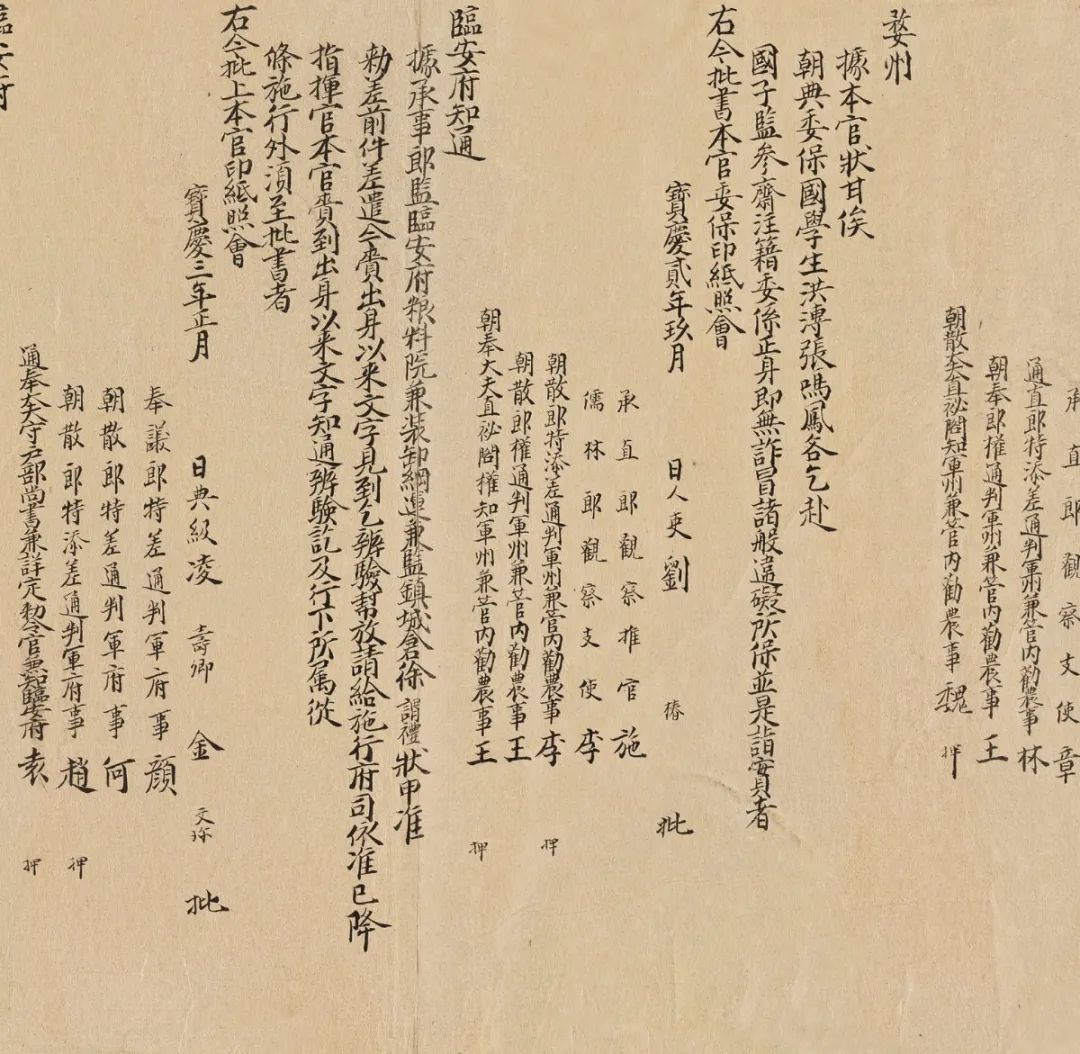 承直郎觀察支使章
通直郎特添差通判軍州兼管內勸農事林
朝奉郎權通判軍州兼管內勸農事王
朝散大夫直祕閣知軍州兼管內勸農事魏 押
婺州
據本官狀甘俟
朝典委保國學生洪溥張鳴鳳各乞赴
國子監參齋注籍委係正身即無詐冒諸般違礙所保並是詣實者
右今批書本官委保印紙照會
寶慶貳年玖月 日人吏劉 椿 批
承直郎觀察推官施
儒林郎觀察支使李
朝散郎特添差通判軍州兼管內勸農事李 押
朝散郎權通判軍州兼管內勸農事王
朝奉大夫直祕閣權知軍州兼管內勸農事王 押
臨安府知通
據承事郎監臨安府粮料院兼裝卸綱運兼監鎮城倉徐謂禮狀申准
勑差前件差遣今賫出身以来文字見到乞辨驗幫放請給施行府司依准已降
指揮官本官賫到出身以来文字知通辨驗訖及行下所属從
條施行外須至批書者
右今批上本官印紙照會
寶慶三年正月 日典級凌 壽卿 金 文 批
奉議郎特差通判軍府事顔
朝散郎特差通判軍府事何
朝散郎特添差通判軍府事趙 押
通奉大夫守户部尚書兼詳定勑令官兼知臨安府袁 押
臨安府